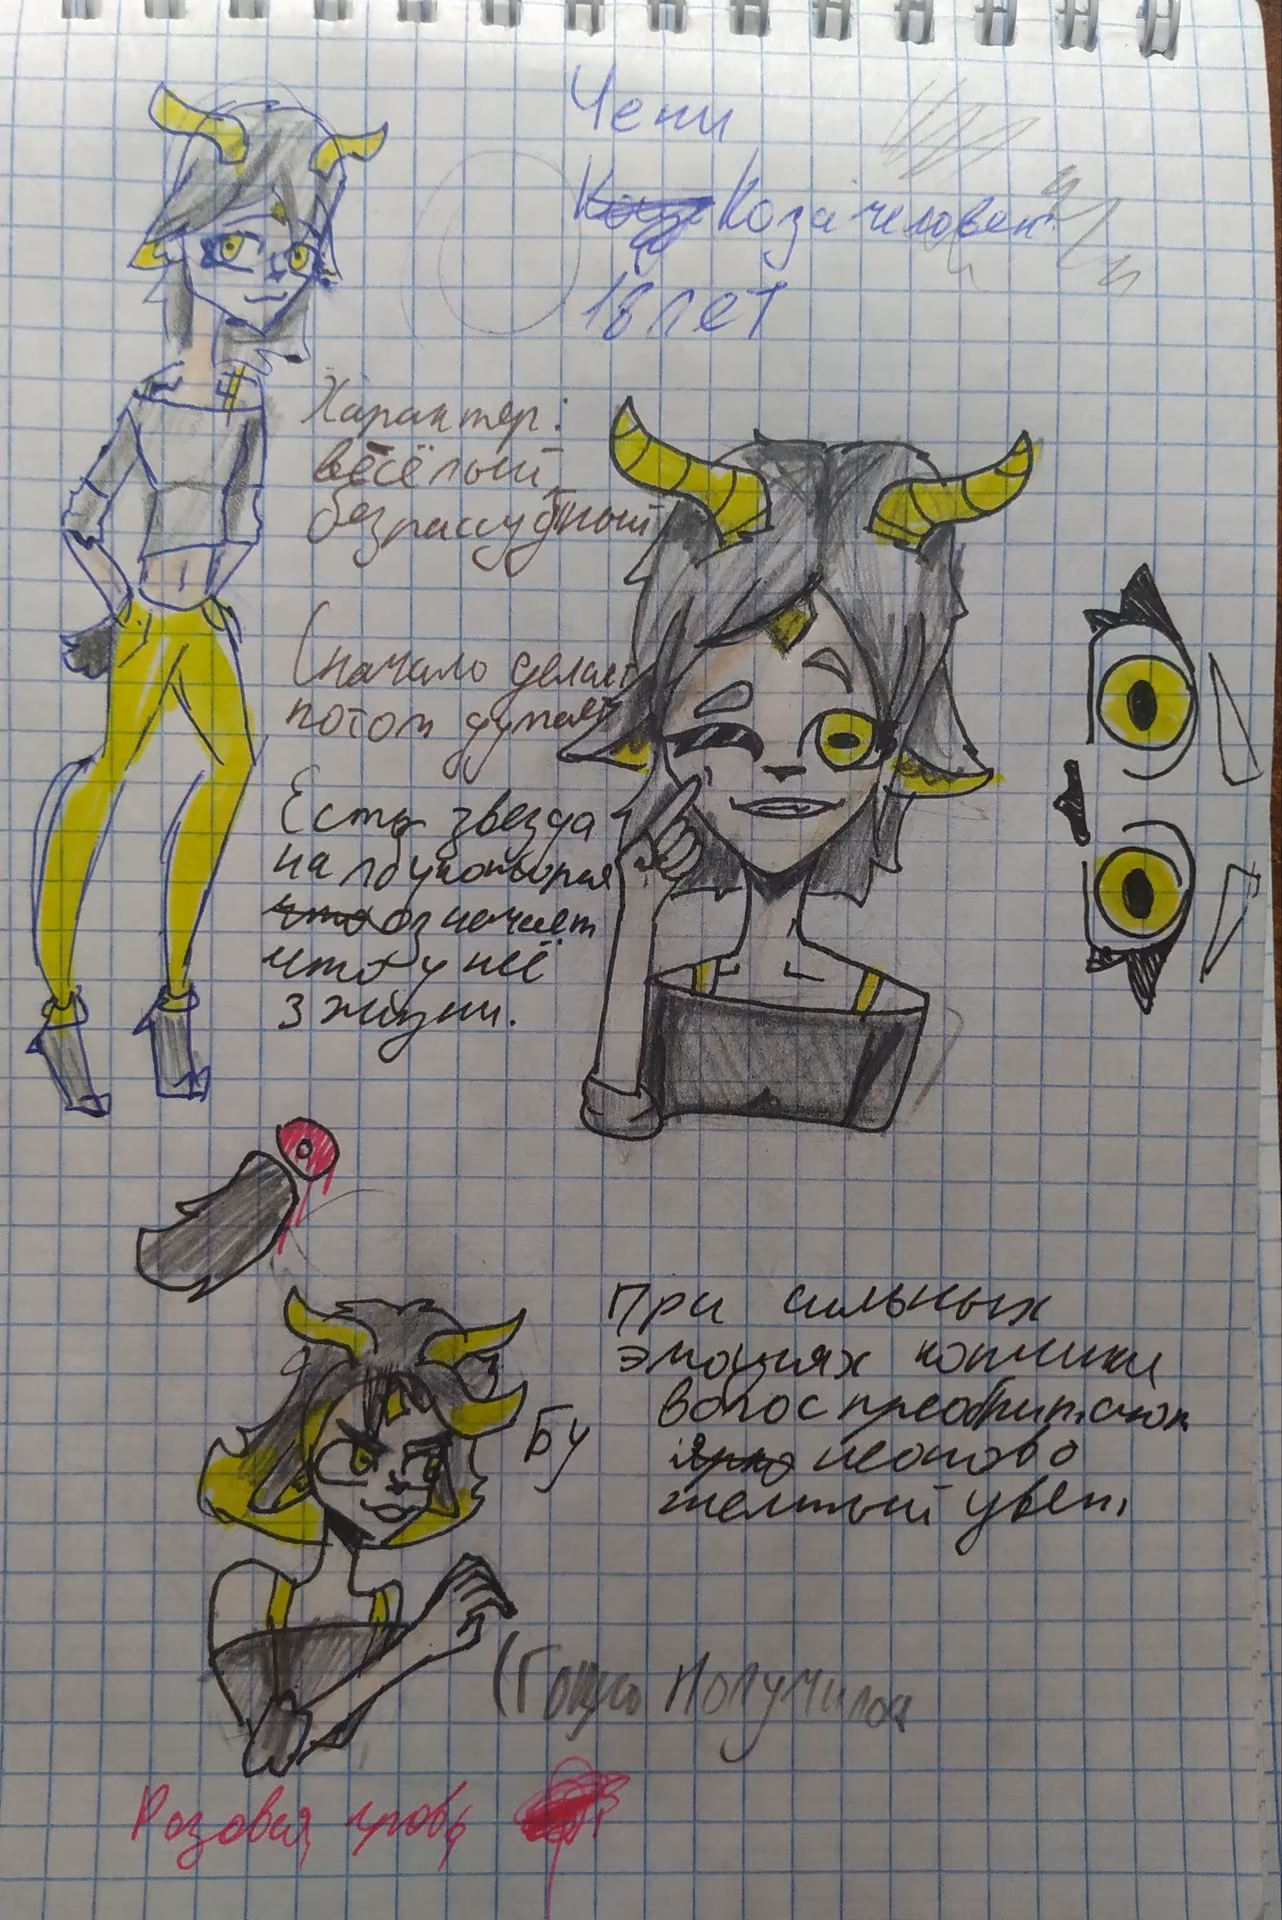 Чепи
Коза человек
18 лет
Характер:
весёлый
безрассудный
(начало делает
потом думает
Есть звезда
на лбу которая
что означает
что у неё
3 жизни.
При сильных
эмоциях кончики
волос
ярко неоново
желтый цвет,
Бу
Розовая кровь